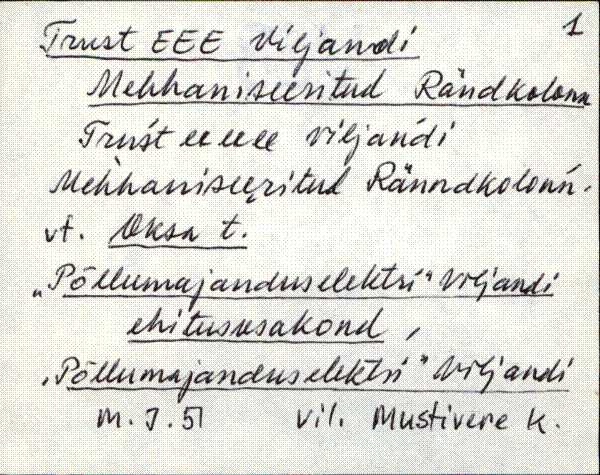 1
Trust EEE Viljandi
Mehhaniseeritud Rändkolonn
Trust ee ee ee Viljandi
Mehhaniseeritud Ränndkolonn.
vt. Oksa t.
„Põllumajanduselektri" Viljandi
ehitusosakond,
„Põllumajanduselektri" Viljandi
M.J.51 vil. Mustivere K.